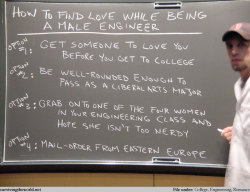 HOW TO FIND LOVE WHILE BEING
A MALE ENGINEER
OPTION #1: GET SOMEONE TO LOVE YOU
BEFORE YOU GET TO COLLEGE
OPTION #2: BE WELL-ROUNDED ENOUGH TO
PASS AS A LIBERAL ARTS MAJOR
OPTION #3: GRAB ONTO ONE OF THE FOUR WOMEN
IN YOUR ENGINEERING CLASS AND
HOPE SHE ISN'T TOO NERDY
OPTION #4: MAIL-ORDER FROM EASTERN EUROPE
File under: College, Engineering, Romance